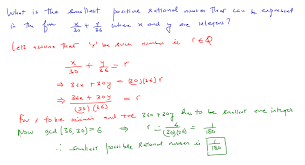 What is the smallest positive rational number that can be expressed
in the form x/30 + y/36 where x and y are integers?
Let's assume that 'r' be such number ie r ∈ Q
x/30 + y/36 = r
⇒ 36x + 30y = (30)(36) r
⇒ (36x + 30y)/((30)(36)) = r
For r to be minimum and +ve 36x + 30y has to be smallest +ve integer
Now gcd(36, 30) = 6 ⇒ r = 6/((30)(36)) = 1/180
∴ smallest possible rational number is 1/180